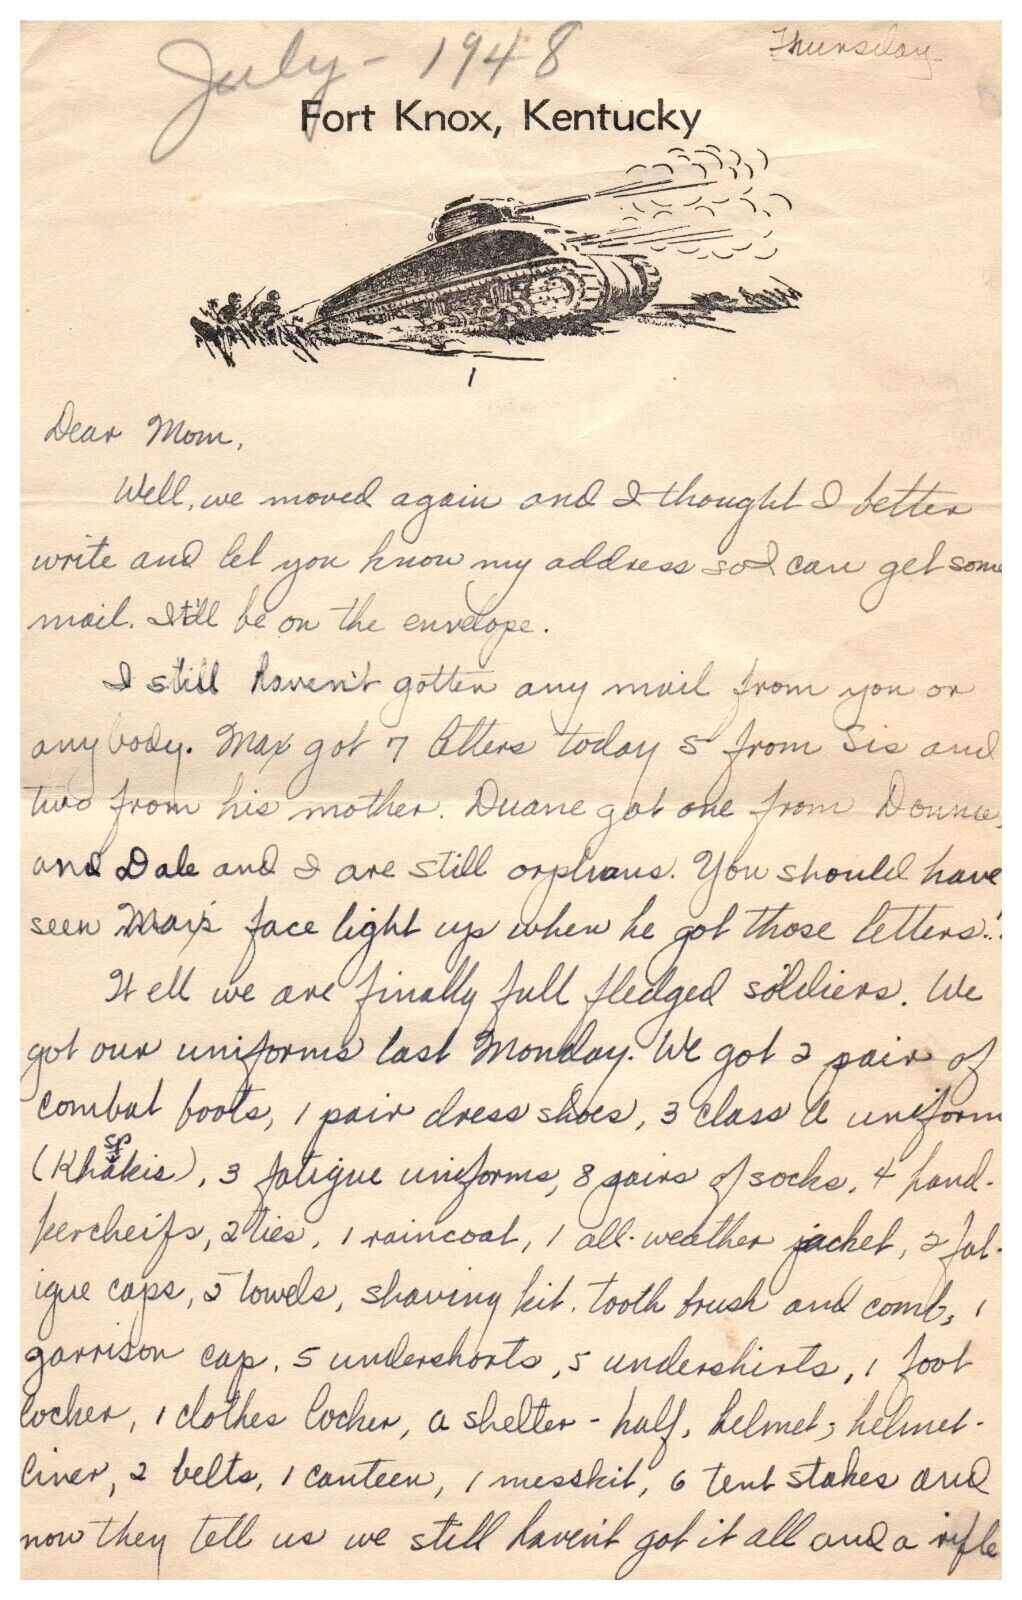 July - 1948
Thursday
Fort Knox, Kentucky
1
Dear Mom,
Well, we moved again and I thought I better
write and let you know my address so I can get some
mail. It'll be on the envelope.
I still haven't gotten any mail from you or
anybody. Max got 7 letters today 5 from Sis and
two from his mother. Duane got one from Donna,
and Dale and I are still orphans. You should have
seen Max's face light up when he got those letters!
Well we are finally full fledged soldiers. We
got our uniforms last Monday. We got 2 pair of
combat boots, 1 pair dress shoes, 3 class A uniform
sp
(Khakis), 3 fatigue uniforms, 8 pairs of socks, 4 hand-
kercheifs, 2 ties, 1 raincoat, 1 all-weather jacket, 2 fat-
igue caps, 5 towels, shaving kit, tooth brush and comb, 1
garrison cap, 5 undershorts, 5 undershirts, 1 foot
locker, 1 clothes locker, a shelter-half, helmet, helmet-
liner, 2 belts, 1 canteen, 1 messkit, 6 tent stakes and
now they tell us we still haven't got it all and a rifle